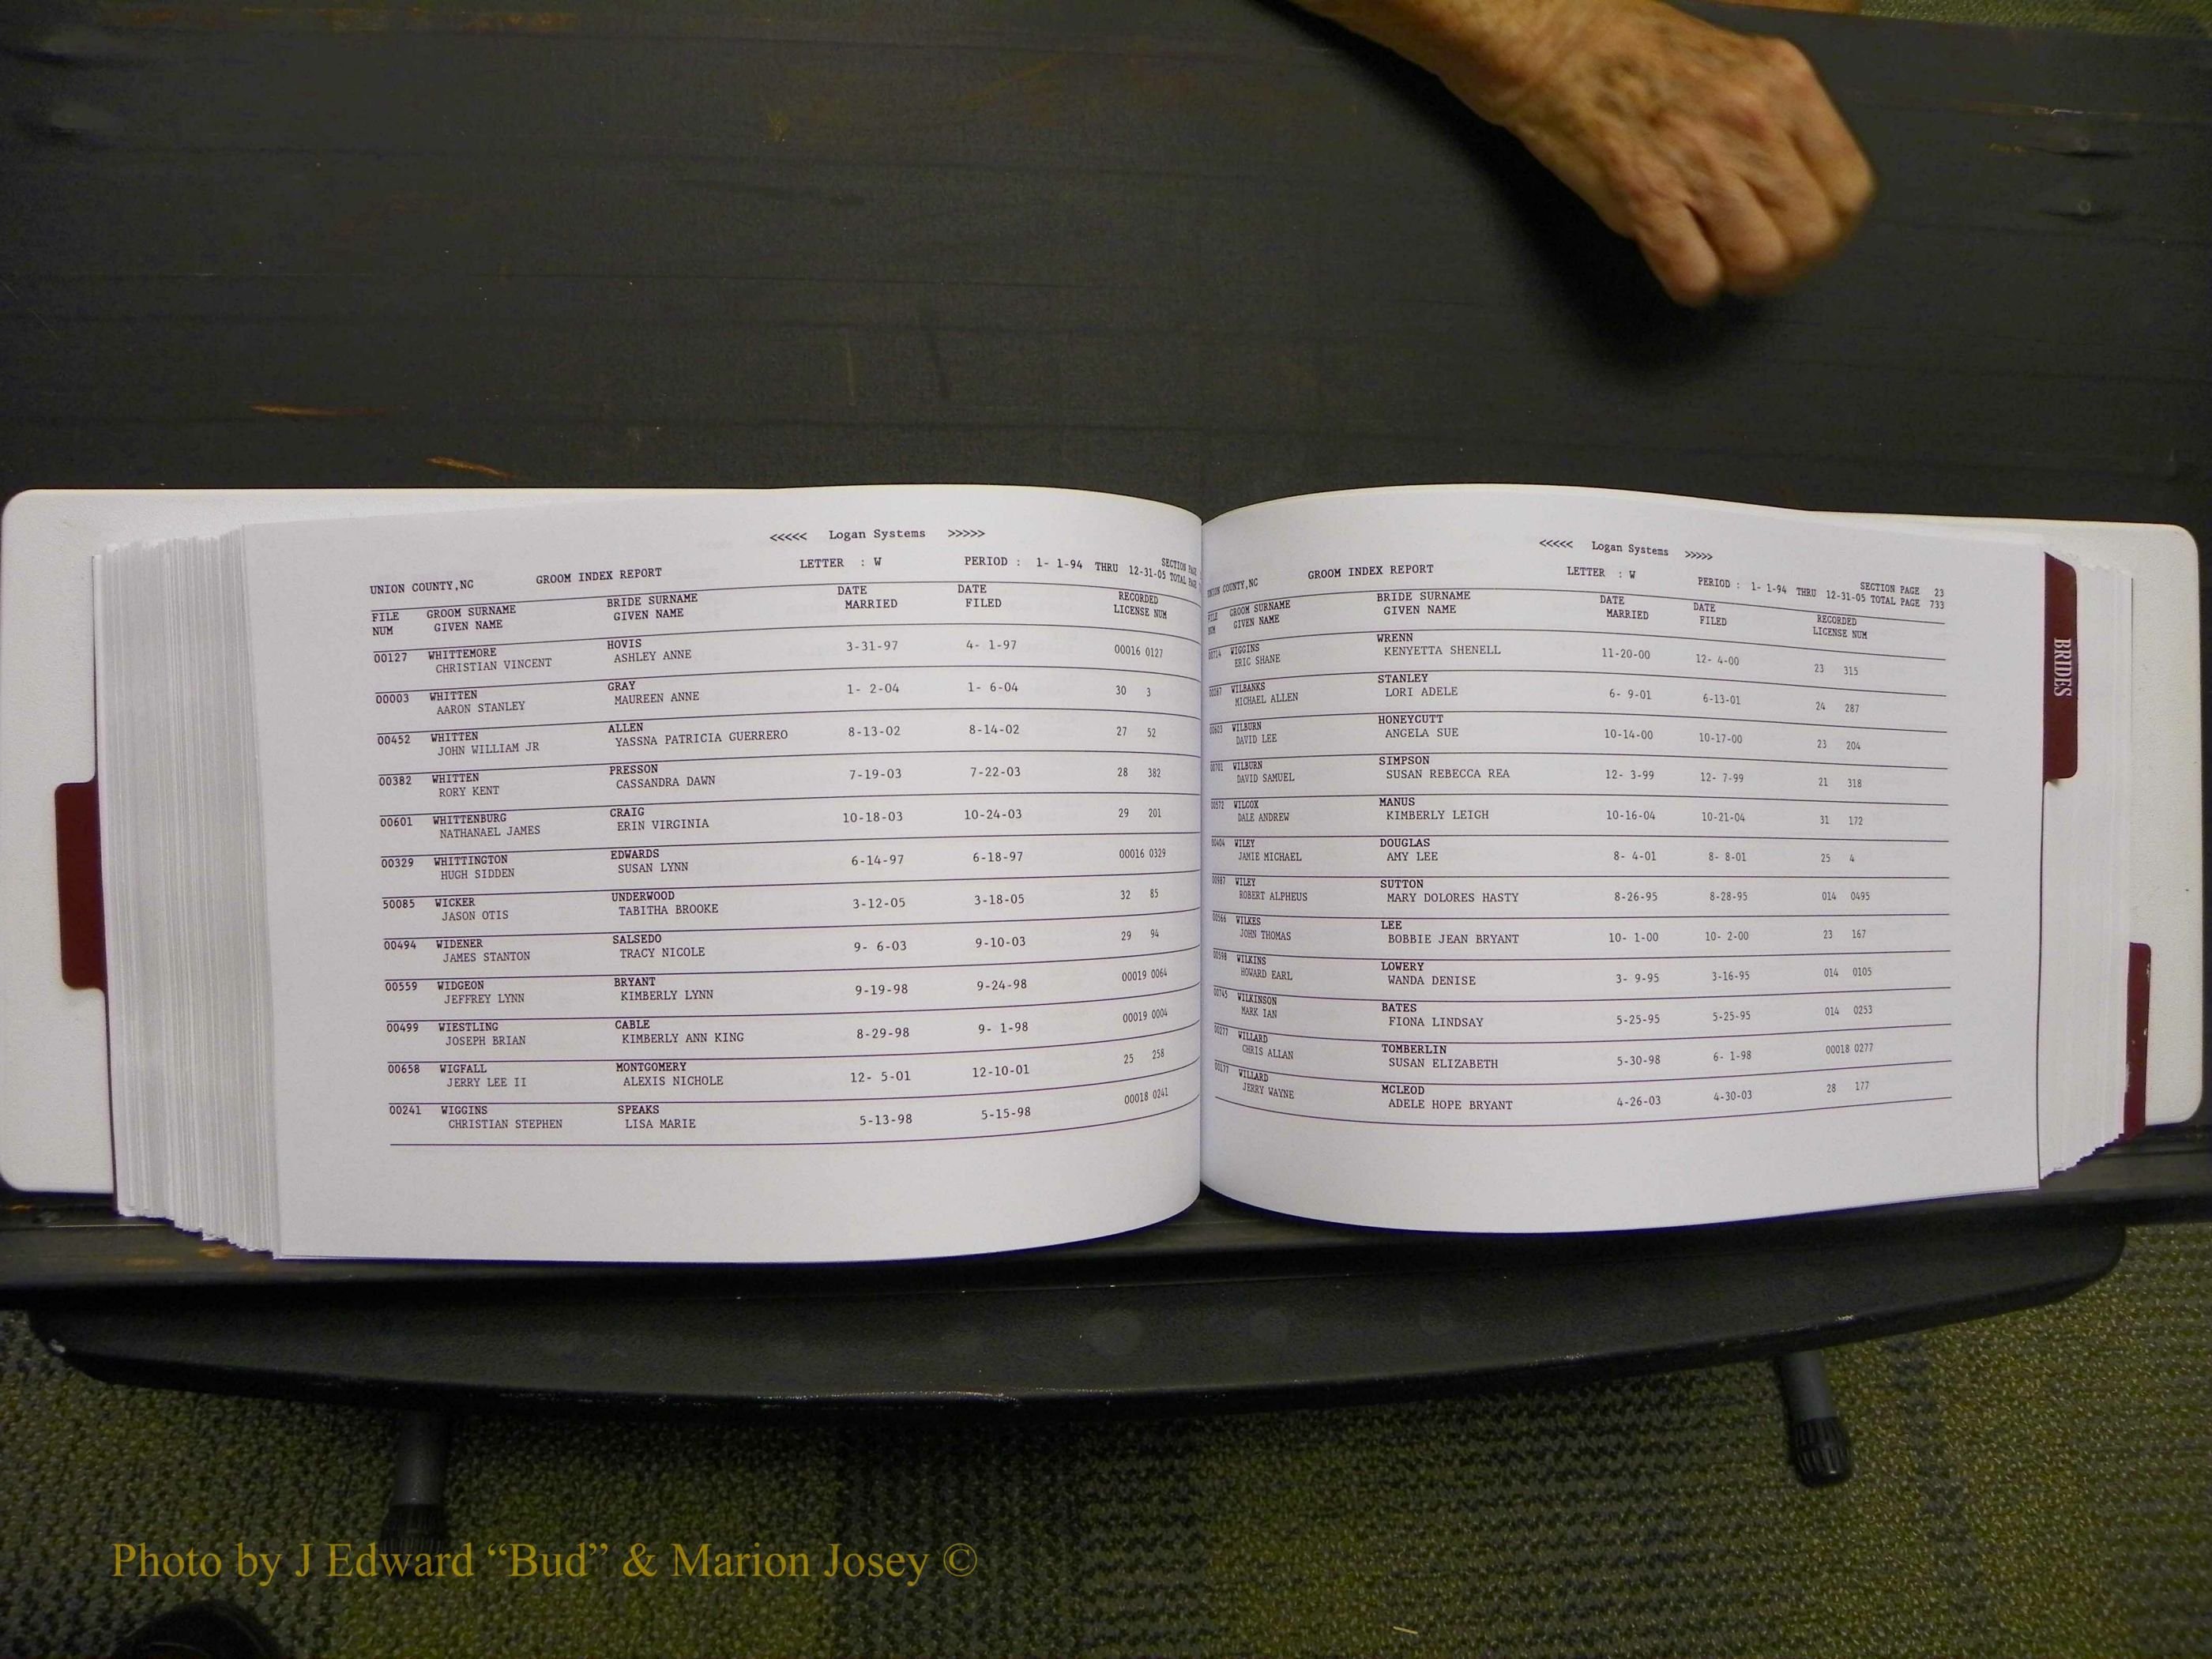 <<<<< Logan Systems >>>>>
UNION COUNTY,NC GROOM INDEX REPORT LETTER : W PERIOD : 1- 1-94 THRU 12-31-05 SECTION PAGE
TOTAL PAGE
FILE GROOM SURNAME BRIDE SURNAME DATE DATE RECORDED
NUM GIVEN NAME GIVEN NAME MARRIED FILED LICENSE NUM
00127 WHITTEMORE HOVIS 3-31-97 4- 1-97 00016 0127
CHRISTIAN VINCENT ASHLEY ANNE
00003 WHITTEN GRAY 1- 2-04 1- 6-04 30 3
AARON STANLEY MAUREEN ANNE
00452 WHITTEN ALLEN 8-13-02 8-14-02 27 52
JOHN WILLIAM JR YASSNA PATRICIA GUERRERO
00382 WHITTEN PRESSON 7-19-03 7-22-03 28 382
RORY KENT CASSANDRA DAWN
00601 WHITTENBURG CRAIG 10-18-03 10-24-03 29 201
NATHANAEL JAMES ERIN VIRGINIA
00329 WHITTINGTON EDWARDS 6-14-97 6-18-97 00016 0329
HUGH SIDDEN SUSAN LYNN
50085 WICKER UNDERWOOD 3-12-05 3-18-05 32 85
JASON OTIS TABITHA BROOKE
00494 WIDENER SALSEDO 9- 6-03 9-10-03 29 94
JAMES STANTON TRACY NICOLE
00559 WIDGEON BRYANT 9-19-98 9-24-98 00019 0064
JEFFREY LYNN KIMBERLY LYNN
00499 WIESTLING CABLE 8-29-98 9- 1-98 00019 0004
JOSEPH BRIAN KIMBERLY ANN KING
00658 WIGFALL MONTGOMERY 12- 5-01 12-10-01 25 258
JERRY LEE II ALEXIS NICHOLE
00241 WIGGINS SPEAKS 5-13-98 5-15-98 00018 0241
CHRISTIAN STEPHEN LISA MARIE
<<<<< Logan Systems >>>>>
UNION COUNTY,NC GROOM INDEX REPORT LETTER : W PERIOD : 1- 1-94 THRU 12-31-05 SECTION PAGE 23
TOTAL PAGE 733
FILE GROOM SURNAME BRIDE SURNAME DATE DATE RECORDED
NUM GIVEN NAME GIVEN NAME MARRIED FILED LICENSE NUM
WIGGINS WRENN 11-20-00 12- 4-00 23 315
ERIC SHANE KENYETTA SHENELL
WILBANKS STANLEY 6- 9-01 6-13-01 24 287
MICHAEL ALLEN LORI ADELE
WILBURN HONEYCUTT 10-14-00 10-17-00 23 204
DAVID LEE ANGELA SUE
WILBURN SIMPSON 12- 3-99 12- 7-99 21 318
DAVID SAMUEL SUSAN REBECCA REA
00572 WILCOX MANUS 10-16-04 10-21-04 31 172
DALE ANDREW KIMBERLY LEIGH
00404 WILEY DOUGLAS 8- 4-01 8- 8-01 25 4
JAMIE MICHAEL AMY LEE
00987 WILEY SUTTON 8-26-95 8-28-95 014 0495
ROBERT ALPHEUS MARY DOLORES HASTY
00566 WILKES LEE 10- 1-00 10- 2-00 23 167
JOHN THOMAS BOBBIE JEAN BRYANT
00598 WILKINS LOWERY 3- 9-95 3-16-95 014 0105
HOWARD EARL WANDA DENISE
00745 WILKINSON BATES 5-25-95 5-25-95 014 0253
MARK IAN FIONA LINDSAY
00277 WILLARD TOMBERLIN 5-30-98 6- 1-98 00018 0277
CHRIS ALLAN SUSAN ELIZABETH
00177 WILLARD MCLEOD 4-26-03 4-30-03 28 177
JERRY WAYNE ADELE HOPE BRYANT
BRIDES
Photo by J Edward “Bud” & Marion Josey ©